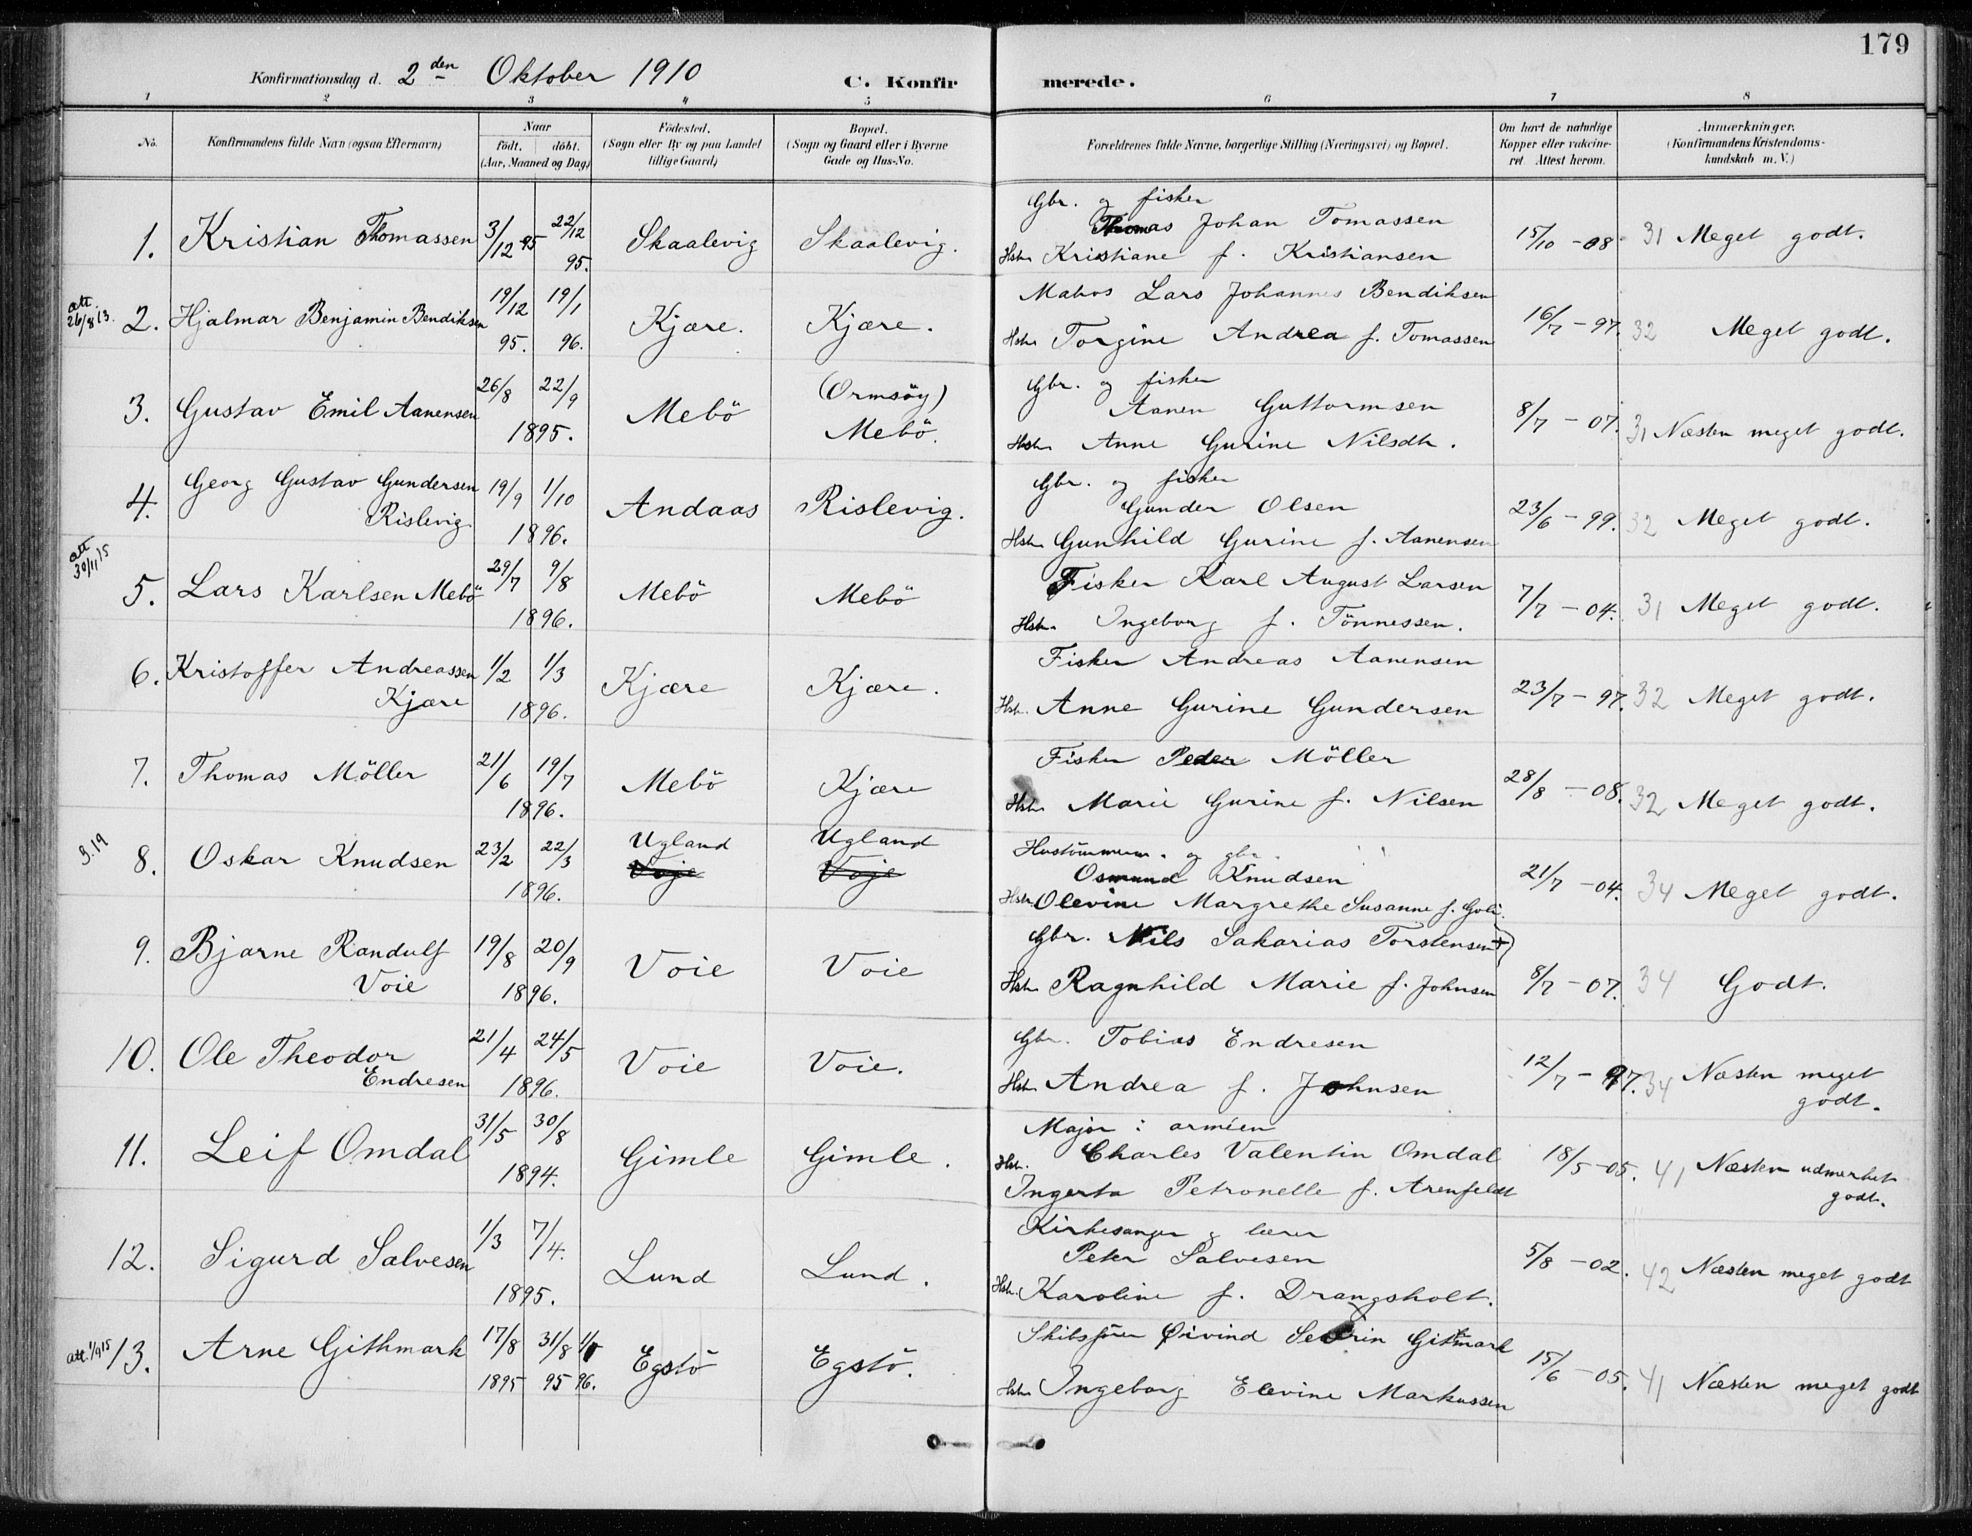 179
Konfirmationsdag d. 2den Oktober 1910 C. Konfirmerede.
1 2 3 4 5 6 7 8
No. Konfirmandens fulde Navn (ogsaa Efternavn) Naar født. døbt. (Aar, Maaned og Dag) Födested. (Sogn eller By og paa Landet tillige Gaard) Bopæl. (Sogn og Gaard eller i Byerne Gade og Hus-No. Forældrenes fulde Navne, borgerlige Stilling (Næringsvei) og Bopæl. Om havt de naturlige Kopper eller vakcineret. Attest herom. Anmærkninger. (Konfirmandens Kristendomskundskab m. V.)
Gbr. og fisker
1. Kristian Thomassen 3/12 95 22/12 95. Skaalevig Skaalevig. Thomas Johan Tomassen 15/10 - 08 31 Meget godt.
Hstr Kristiane f. Kristiansen
att. 26/8 13. 2. Hjalmar Benjamin Bendiksen 19/12 95. 19/1 96. Kjære. Kjære. Matros Lars Johannes Bendiksen 16/7 - 97. 32 Meget godt.
Hstr Torgine Andrea f. Tomassen
3. Gustav Emil Aanensen 26/8 22/9 1895. Mebö (Ormsöy) Mebö. Gbr. og fisker
Aanen Guttormsen 8/7 - 07. 31 Næsten meget godt.
Hstr Anne Gurine Nilsdtr.
4. Georg Gustav Gundersen Rislevig 19/9 1/10 1896. Andaas Rislevig. Gbr. og fisker
Gunder Olsen 23/6 - 99. 32 Meget godt.
Hstr Gunhild Gurine f. Aanensen
att 30/11 15 5. Lars Karlsen Mebö 29/7 9/8 1896. Mebö Mebö Fisker Karl August Larsen 7/7 - 04. 31 Meget godt.
Hstr. Ingeborg f. Tönnessen.
6. Kristoffer Andreassen Kjære 1/2 1/3 1896. Kjære Kjære. Fisker Andreas Aanensen 23/7 - 97. 32 Meget godt.
Hstr. Anne Gurine Gundersen
7. Thomas Möller 21/6 19/7 1896. Mebö Kjære Fisker Peder Möller 28/8 - 08. 32 Meget godt.
Hstr Marie Gurine f. Nilsen
8. Oskar Knudsen 23/2 22/3 1896. Ugland Voje Ugland Voje Hustömmerm. og gbr.
Osmund Knudsen 21/7 - 04. 34 Meget godt.
Hstr. Olevine Margrethe Susanne f. Goli.
9. Bjarne Randulf Voie 19/8 20/9 1896. Voie Voie Gbr. Nils Sakarias Torstensen +) 8/7 - 07. 34 Godt.
Hstr Ragnhild Marie f. Johnsen
10. Ole Theodor Endresen 21/4 24/5 1896. Voie Voie. Gbr. Tobias Endresen 12/7 - 97. 34 Næsten meget godt.
Hstr Andrea f. Johnsen
11. Leif Omdal 31/5 30/8 1894. Gimle Gimle. Major i arméen
Charles Valentin Omdal 18/5 - 05. 41 Næsten udmerket godt.
Hstr. Ingerta Petronelle f. Arenfeldt
12. Sigurd Salvesen 1/3 7/4. 1895. Lund Lund. Kirkesanger og lærer
Peter Salvesen 5/8 - 02. 42 Næsten meget godt
Hstr. Karoline f. Drangsholt.
att. 1/9 15 13. Arne Githmark 17/8 1895 31/8 95 96. Egstö Egstö. Skibsfører Øivind Severin Gitmark 15/6 - 05. 41 Næsten meget godt
Hstr Ingeborg Elevine Markussen